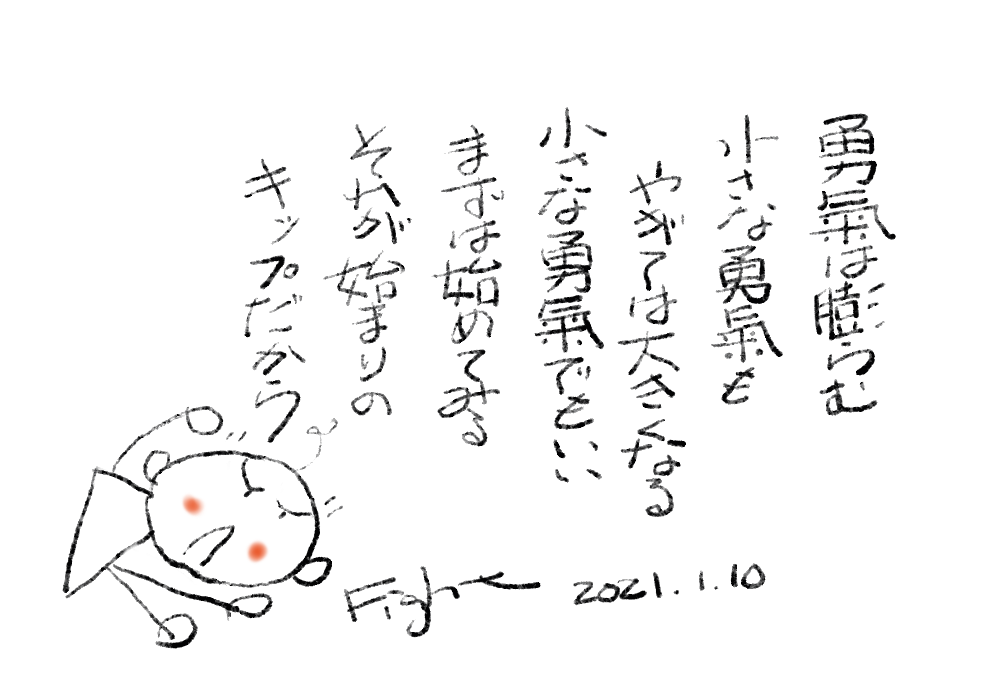 勇氣は膨らむ
小さな勇氣も
やがては大きくなる
小さな勇氣でもいい
まずは始めてみる
それが始まりの
キップだから
Fight
2021.1.10